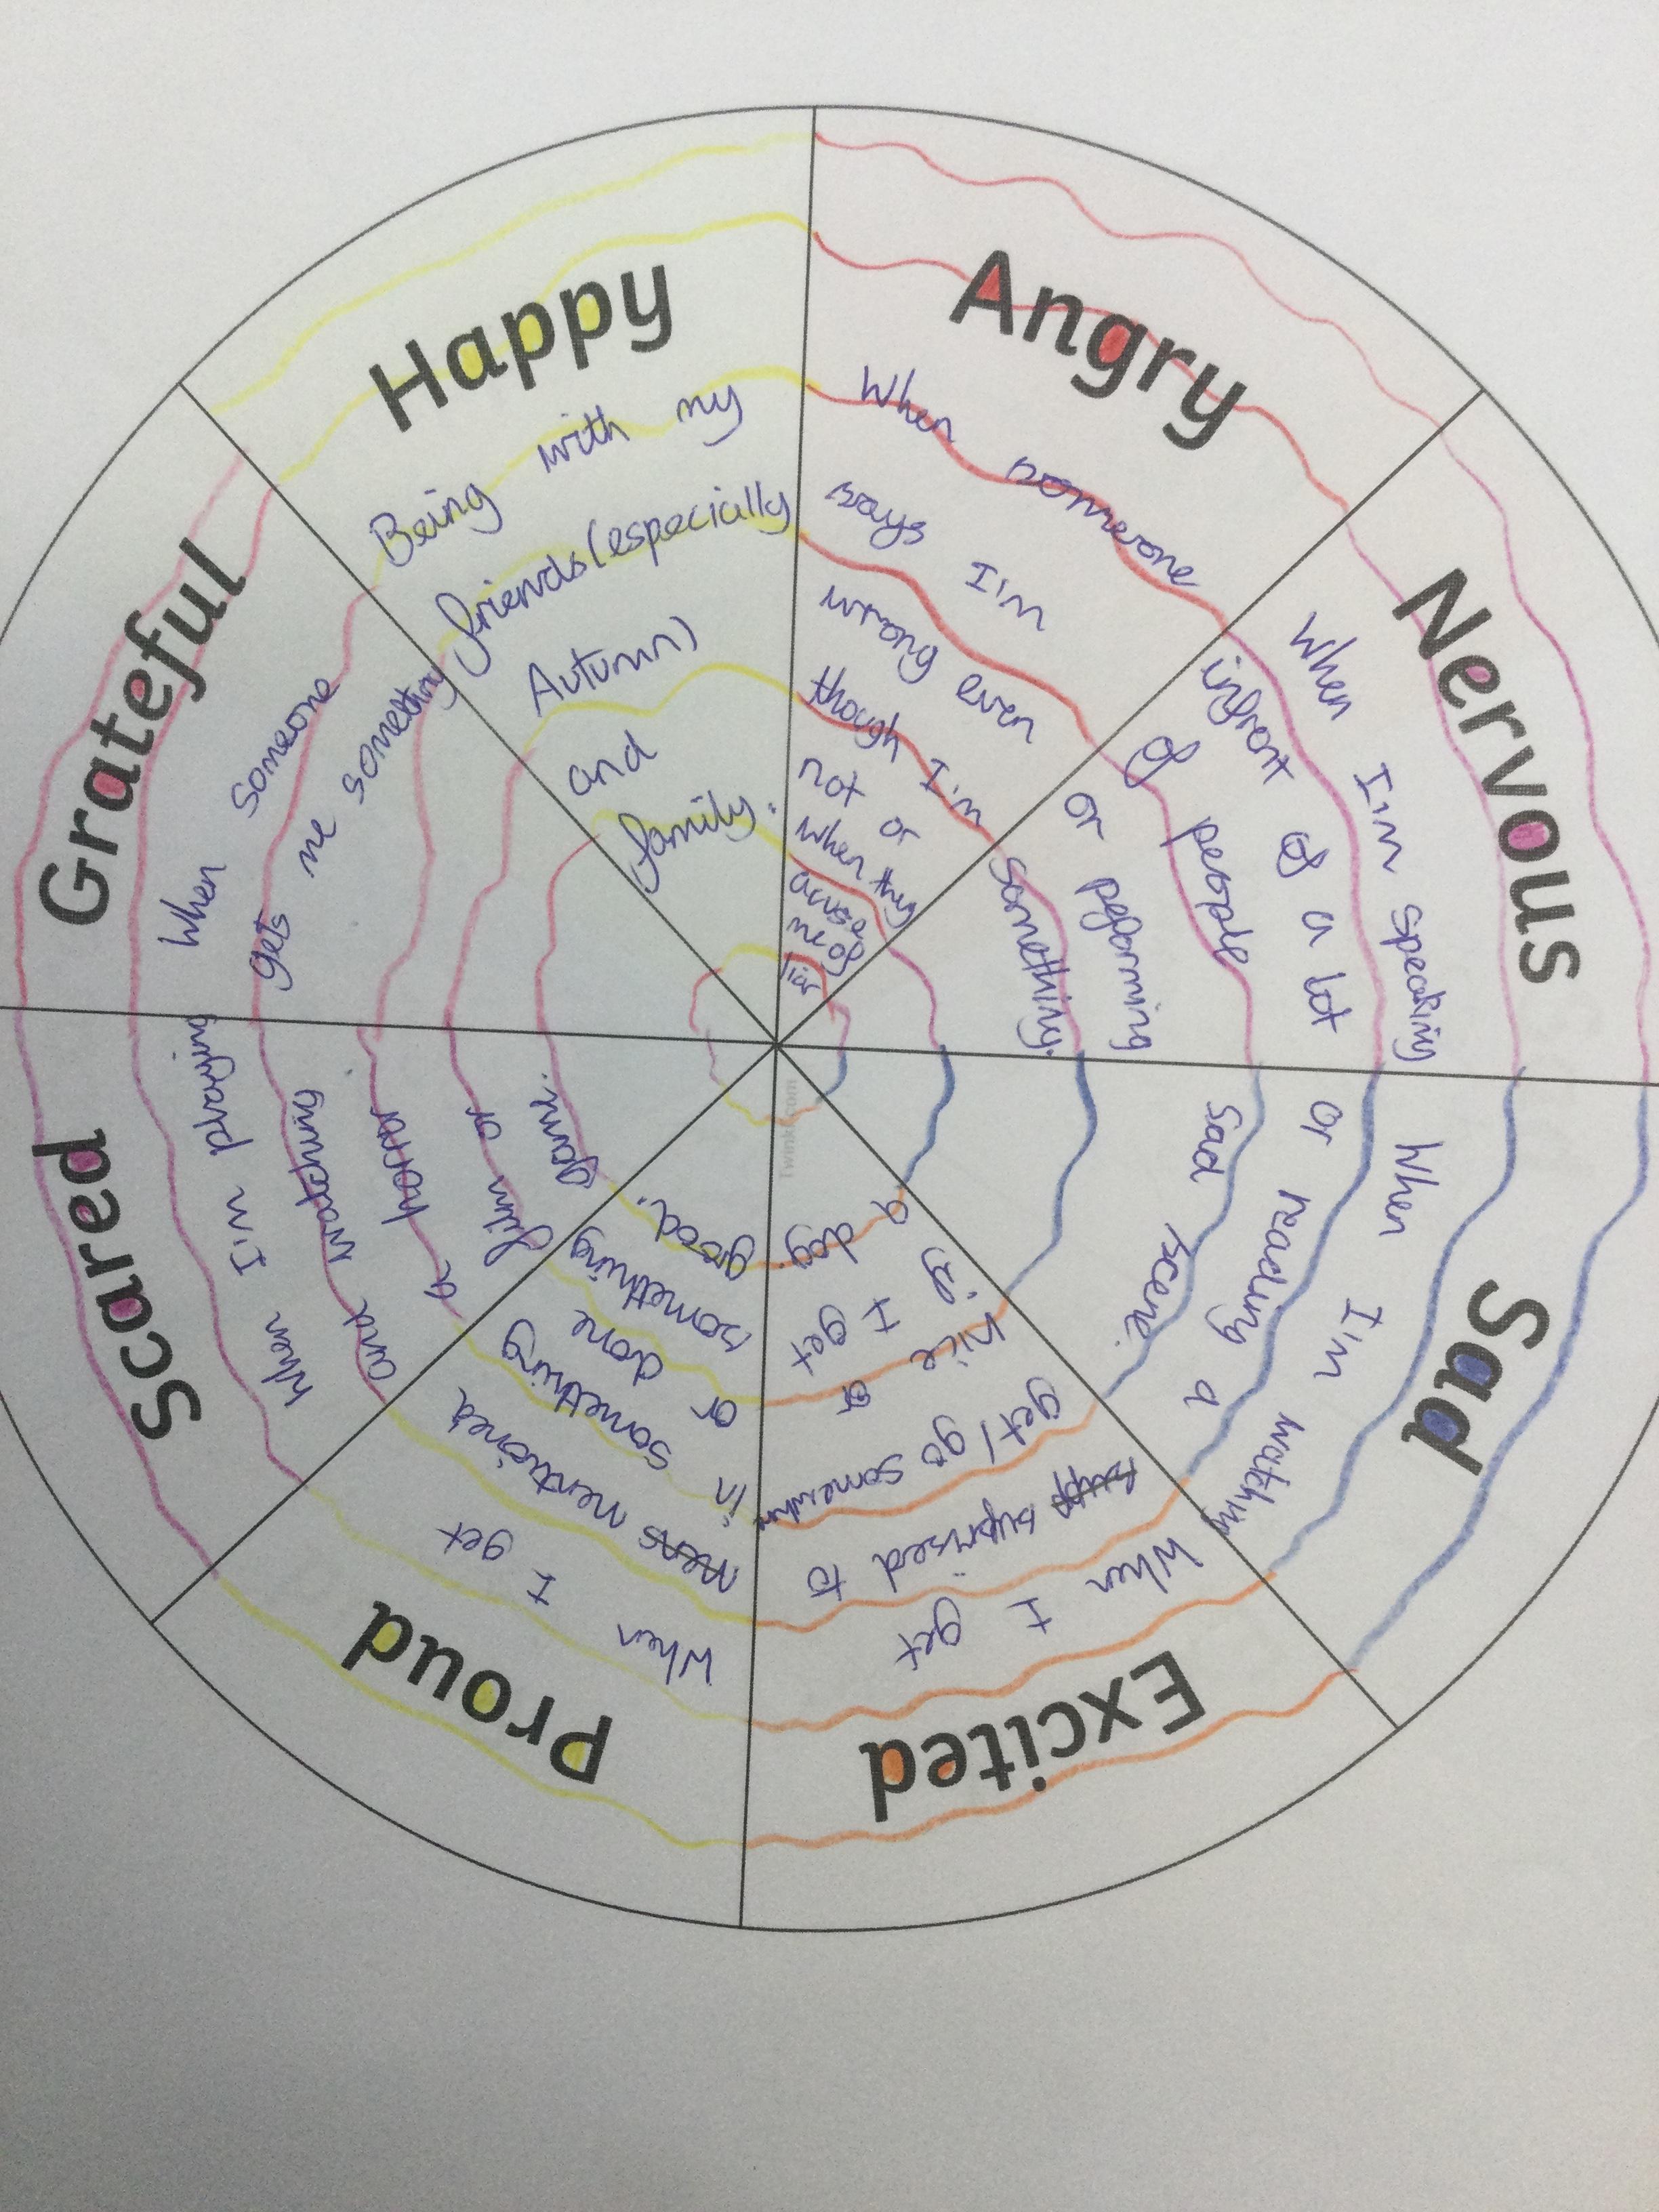 Happy
Being with my
friends (especially
Autumn)
and
family.
Angry
When someone
says I'm
wrong even
though I'm
not or
when they
accuse
me of
liar
Nervous
When I'm speaking
infront of a lot
of people
or pefoming
something.
Sad
When I'm watching
or reading a
sad scene.
Excited
When I get
supp suprised to
get/go somewhere
nice or
if I get
a dog.
Proud
When I get
mens mentioned
in something
or done
something
good.
Scared
When I'm playing
and watching
a horror
film or
game.
Grateful
When someone
gets me something